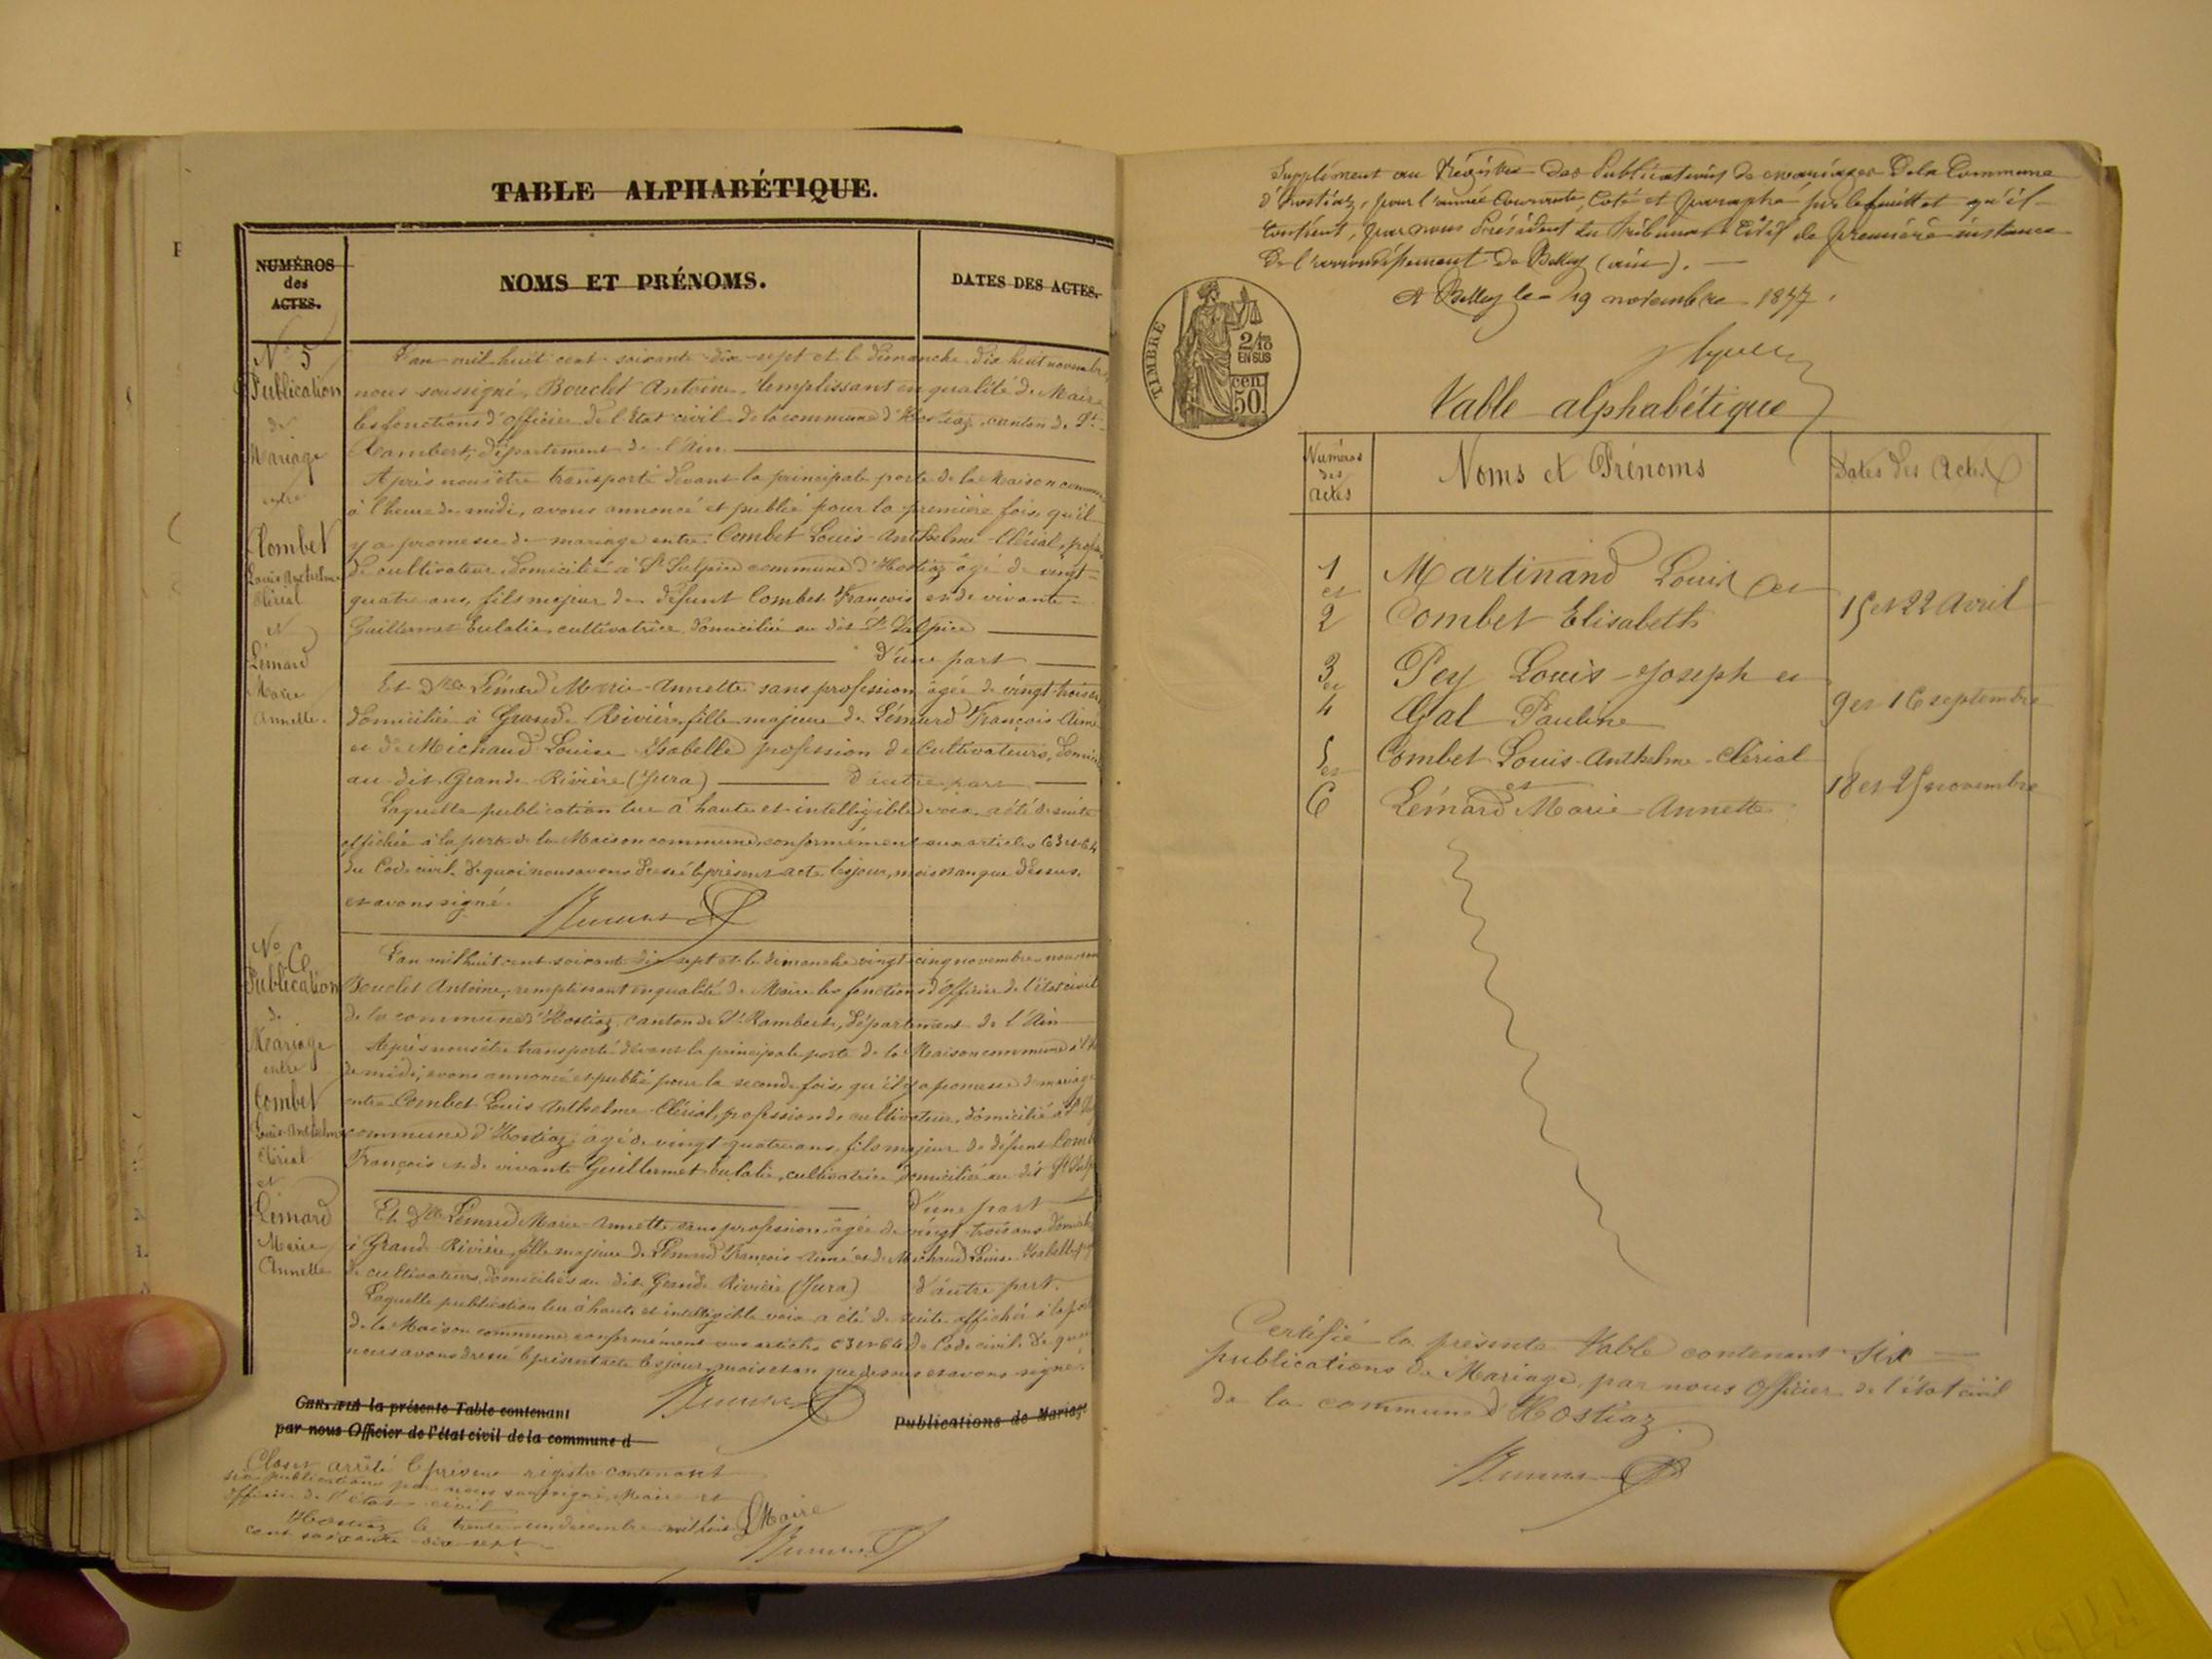 TABLE ALPHABÉTIQUE.
NUMÉROS
des
ACTES.
NOMS ET PRÉNOMS.
DATES DES ACTES.
N° 5
Publication
de
Mariage
entre
Combet
Louis Anthelme
Clérial
et
Lémard
Marie
Annette.
L'an mil huit cent soixante-dix-sept et le dimanche dix huit novembre
nous soussigné, Bouclet Antoine, remplissant en qualité de Maire
les fonctions d'officier de l'état civil de la commune d'Hostiaz, canton de St
Rambert, département de l'Ain.
Après nous être transporté devant la principale porte de la Maison commune
à l'heure de midi, avons annoncé et publié pour la première fois, qu'il
y a promesse de mariage entre Combet Louis-Anthelme-Clérial,
de cultivateur, domicilié à St Sulpice commune d'Hostiaz âgé de vingt-
quatre ans, fils majeur de défunt Combet François et de vivante
Guillermet Eulalie, cultivatrice, domiciliée au dit St Sulpice
d'une part
Et Dlle Lémard Marie-Annette sans profession âgée de vingt-trois
domiciliée à Grande Rivière, fille majeure de Lémard François-Aimé
et de Michaud Louise-Isabelle profession de cultivateurs,
au dit Grande-Rivière (Jura) d'autre part
Laquelle publication lue à haute et intelligible voix, a été de suite
affichée à la porte de la Maison commune, conformément aux articles 63 et 64
du Code civil. De quoi nous avons dressé le présent acte les jour, mois et an que dessus,
et avons signé.
N° 6
Publication
de
Mariage
entre
Combet
Louis-Anthelme
Clérial
et
Lémard
Marie
Annette
L'an mil huit cent soixante dix sept et le dimanche vingt-cinq novembre,
Bouclet Antoine, remplissant en qualité de Maire les fonctions d'officier de l'état civil
de la commune d'Hostiaz, canton de St Rambert, département de l'Ain
Après nous être transporté devant la principale porte de la Maison commune
de midi, avons annoncé et publié pour la seconde fois, qu'il y a promesse de mariage
entre Combet Louis Anthelme-Clérial, profession de cultivateur, domicilié à St
commune d'Hostiaz, âgé de vingt-quatre ans, fils majeur de défunt
François et de vivante Guillermet Eulalie, cultivatrice, domiciliée au dit St
d'une part
Et Dlle Lémard Marie-Annette sans profession âgée de vingt-trois ans
à Grande Rivière, fille majeure de Lémard François-Aimé et de Michaud Louise-Isabelle
de cultivateurs, domiciliés au dit Grande Rivière (Jura) d'autre part.
Laquelle publication lue à haute et intelligible voix a été de suite affichée à la porte
de la Maison commune conformément aux articles 63 et 64 du Code civil. De quoi
nous avons dressé le présent acte les jour, mois et an que dessus et avons signé.
CERTIFIÉ la présente Table contenant Publications de Mariage
par nous Officier de l'état civil de la commune d
Clos et arrêté le présent registre contenant
six publications par nous soussigné, Maire et
officier de l'état civil
Hostiaz le trente-un décembre mil huit
cent soixante-dix-sept
Le Maire
Supplément au Régistre des Publications de mariages De la Commune
d'hostiaz, pour l'année Courante, Coté et paraphé sur le feuillet qu'il
Contient, par nous Président du Tribunal Civil de première instance
De l'arrondissement De Belley (ain).
A Belley le 19 novembre 1877.
TIMBRE
2/10
EN SUS
50 cen
Table alphabétique
Numéros
des
actes
Noms et Prénoms
Dates des Actes
1
et
2
Martinand Louis et
Combet Elisabeth
15 et 22 Avril
3
et
4
Pey Louis-Joseph et
Gal Pauline
9 et 16 septembre
5
et
6
Combet Louis-Anthelme-Clérial
et
Lémard Marie-Annette
18 et 25 novembre
Certifié la présente Table contenant six
publications de Mariage, par nous Officier de l'état civil
de la commune d'Hostiaz.